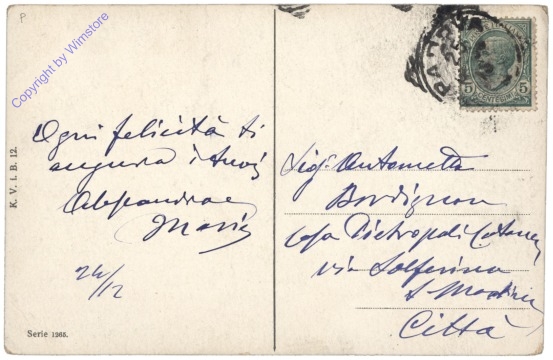 P
Copyright by Wimstore
PADOVA
5 CENTESIMI 5
K. V. i. B. 12.
Ogni felicità ti
augura i tuoi
Alessandra
Maria
24/12
Serie 1265.
Sig. Antonietta
Bordignon
Casa Pietropoli
via Solferino
S. Martino
Città